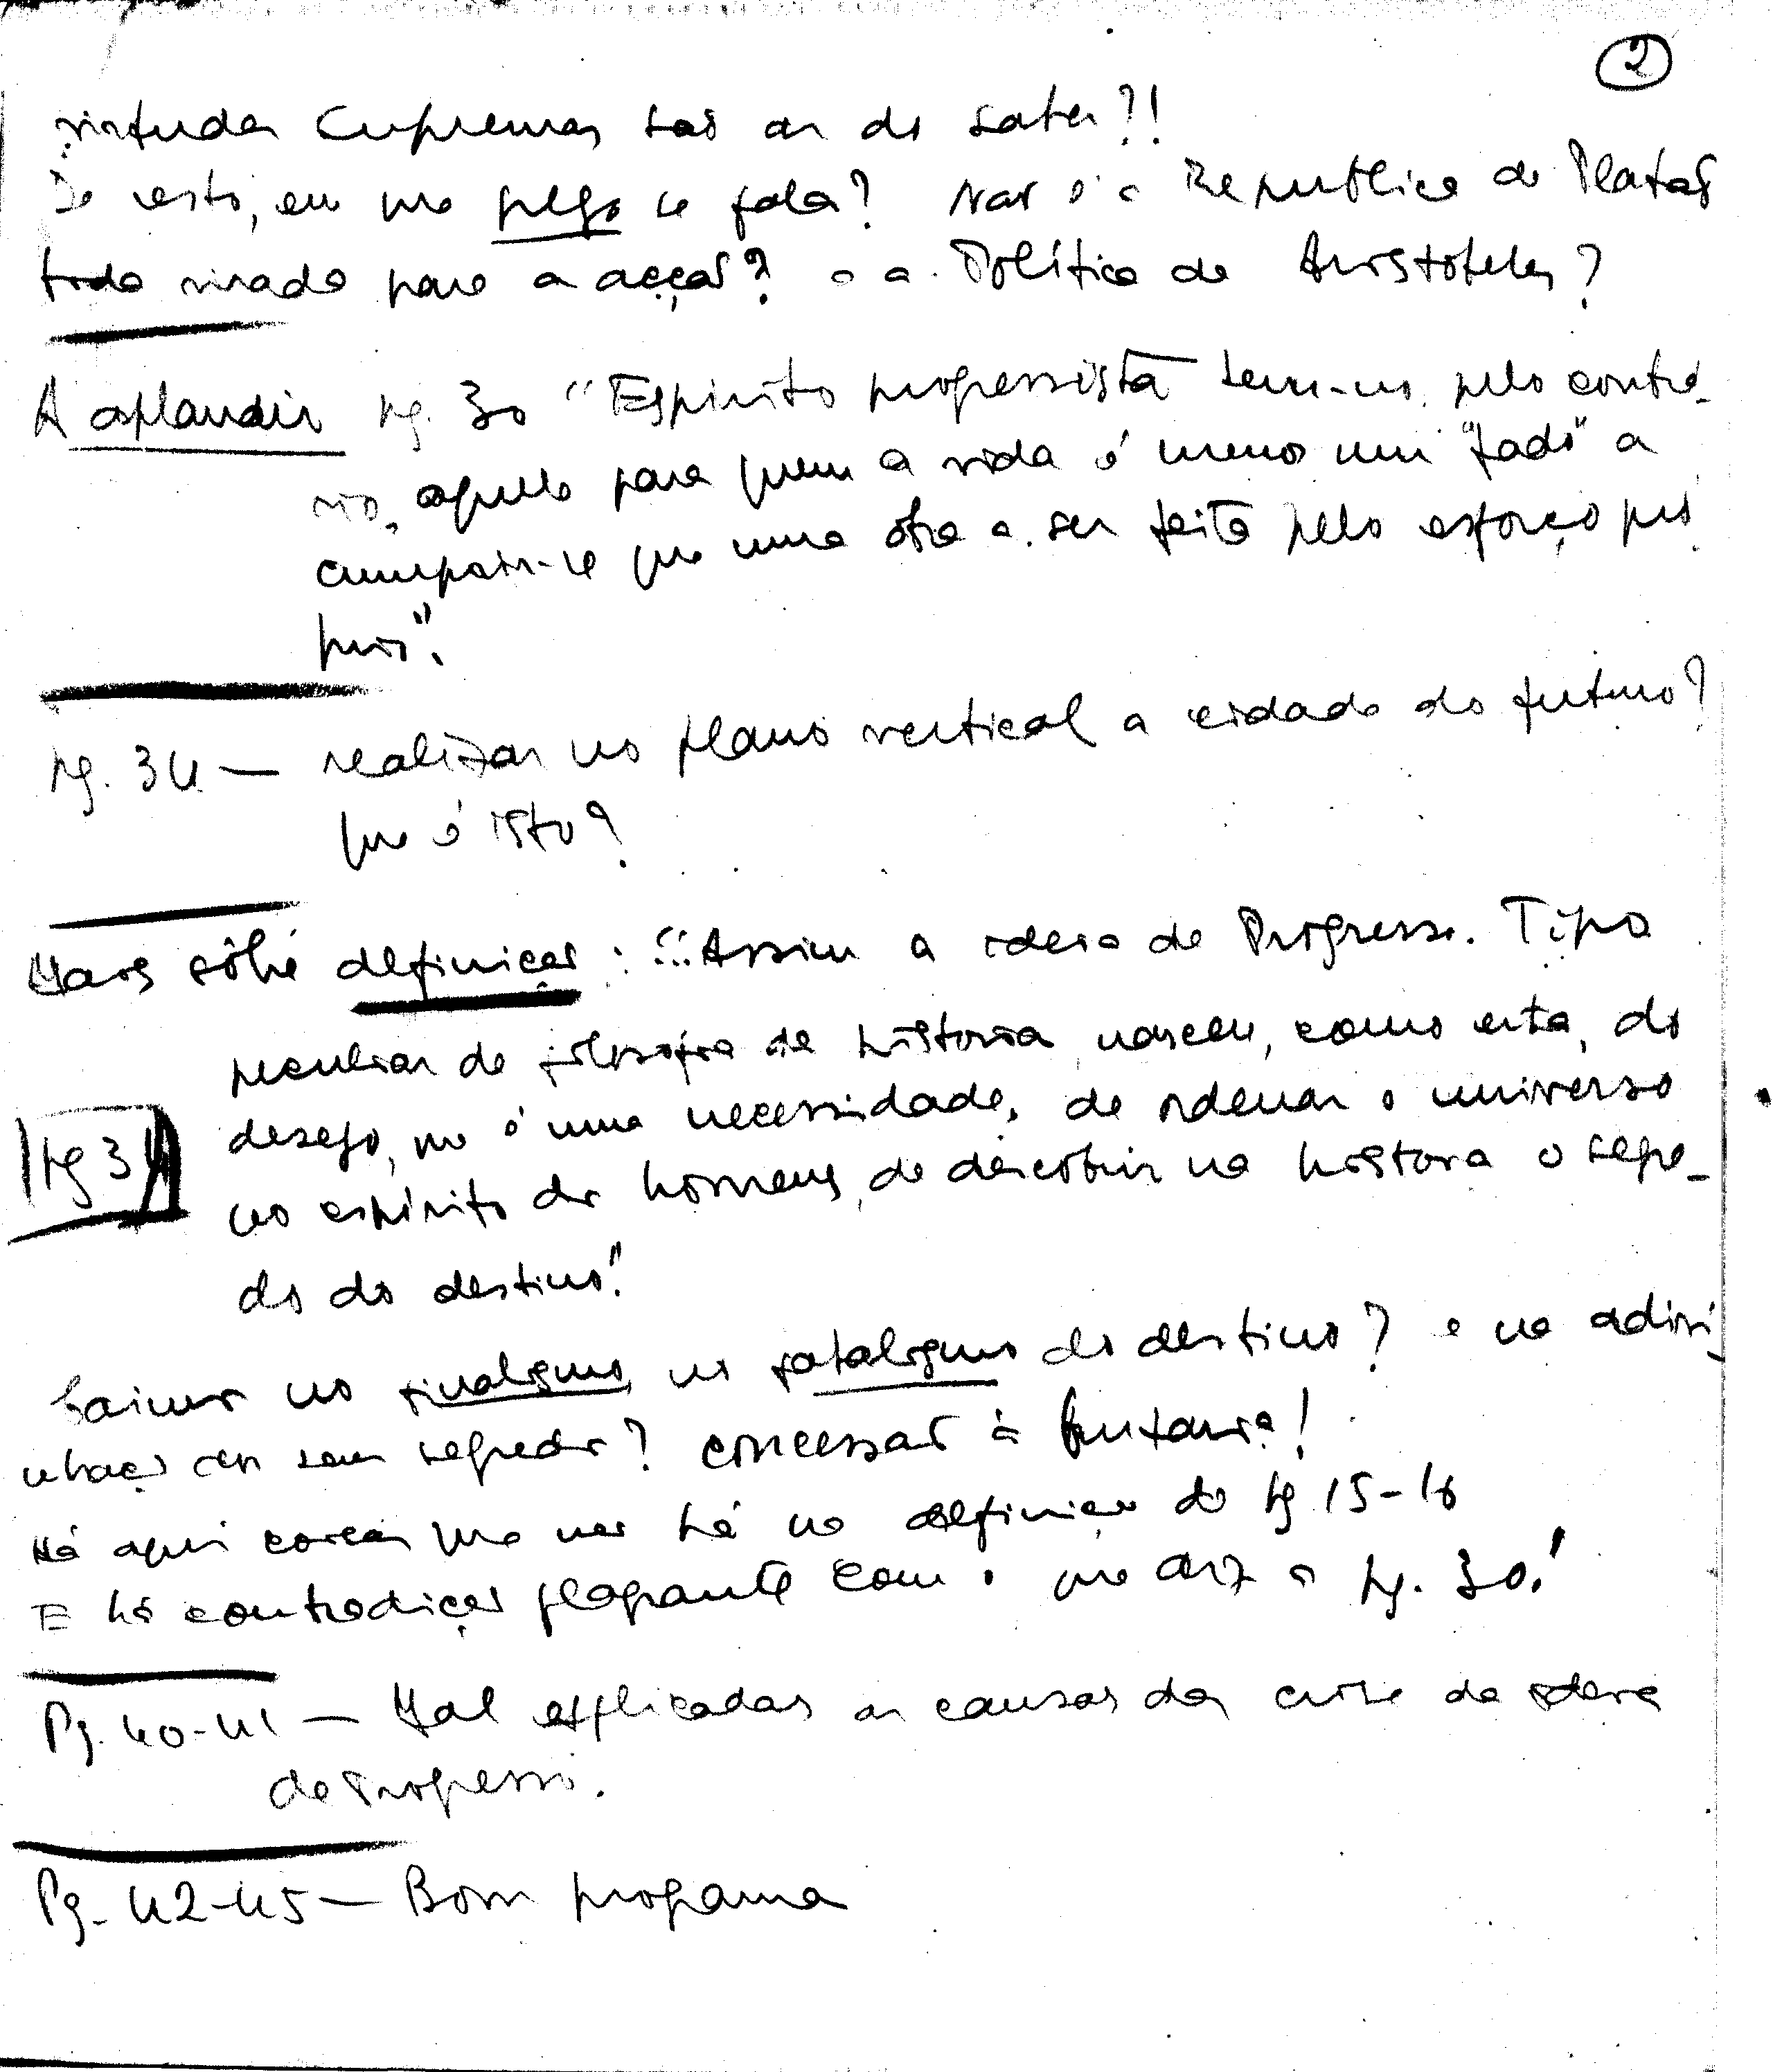 2
virtudes supremas são as do saber?!
De resto, em que grego se fala? Não é a Republica de Platão
toda virada para a acção? e a Política de Aristoteles?
A aplaudir pg. 30 "Espirito progressista tem-no, pelo contrá-
rio, aquele para quem a vida é menos um "fado" a
cumprir-se que uma obra a ser feita pelo esforço pró
prio".
pg. 34 — realizar no plano vertical a cidade do futuro?
que é isto?
Mais sôbre definição: "...Assim a ideia de Progresso. Tipo
peculiar de filosofia da historia, nasceu, como esta, do
desejo, que é uma necessidade, de ordenar o universo
pg 34
no espírito dos homens, de descobrir na historia o segre-
do do destino".
Caimos no finalismo, no fatalismo do destino? e na adivi
nhação dos seus segredos? concessão à
Há aqui coisas que não há na definição de pg 15-16
E há contradição flagrante com o que diz a pg. 30!
Pg. 40-41 — Mal explicadas as causas da crise da ideia
de Progresso.
Pg. 42-45 — Bom programa